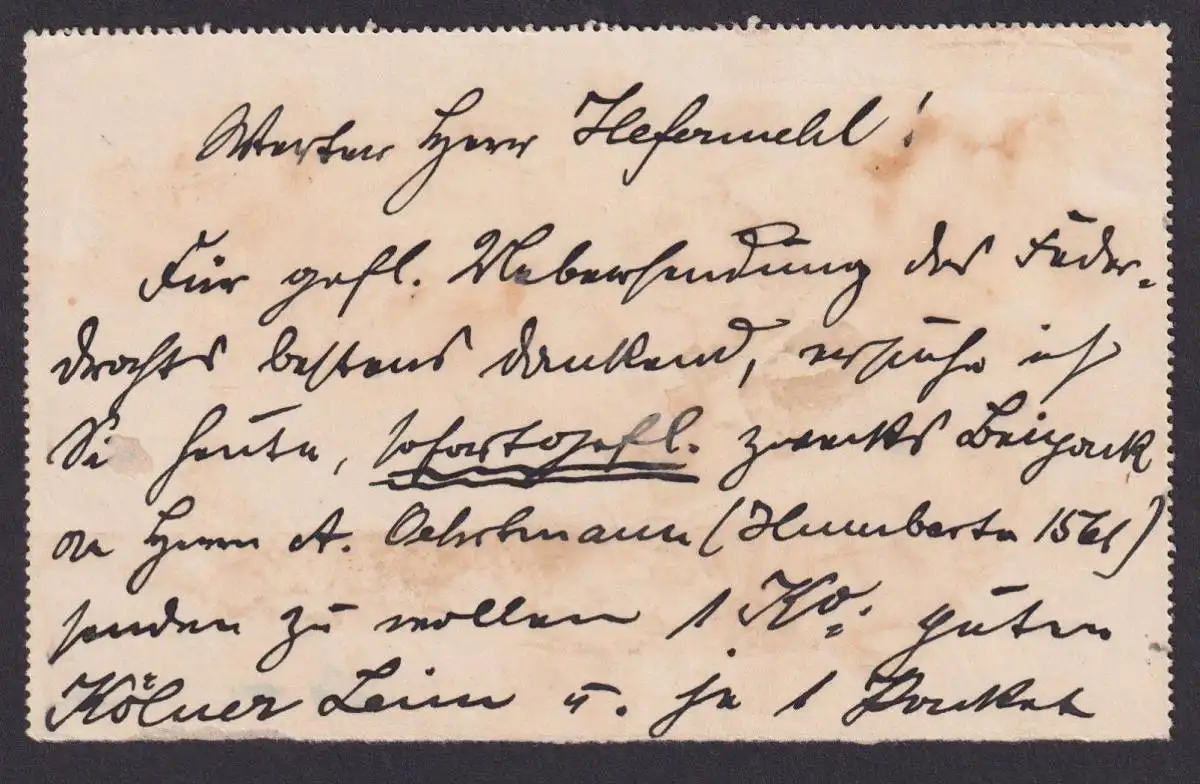 Werter Herr Hefermehl!
Für gefl. Uebersendung des Feder-
drahts bestens dankend, ersuche ich
Sie heute, sofort gefl. zwecks Beipack
an Herrn A. Oehrtmann (Humberto 1561)
senden zu wollen 1 Ko. guten
Kölner Leim u. je 1 Packet